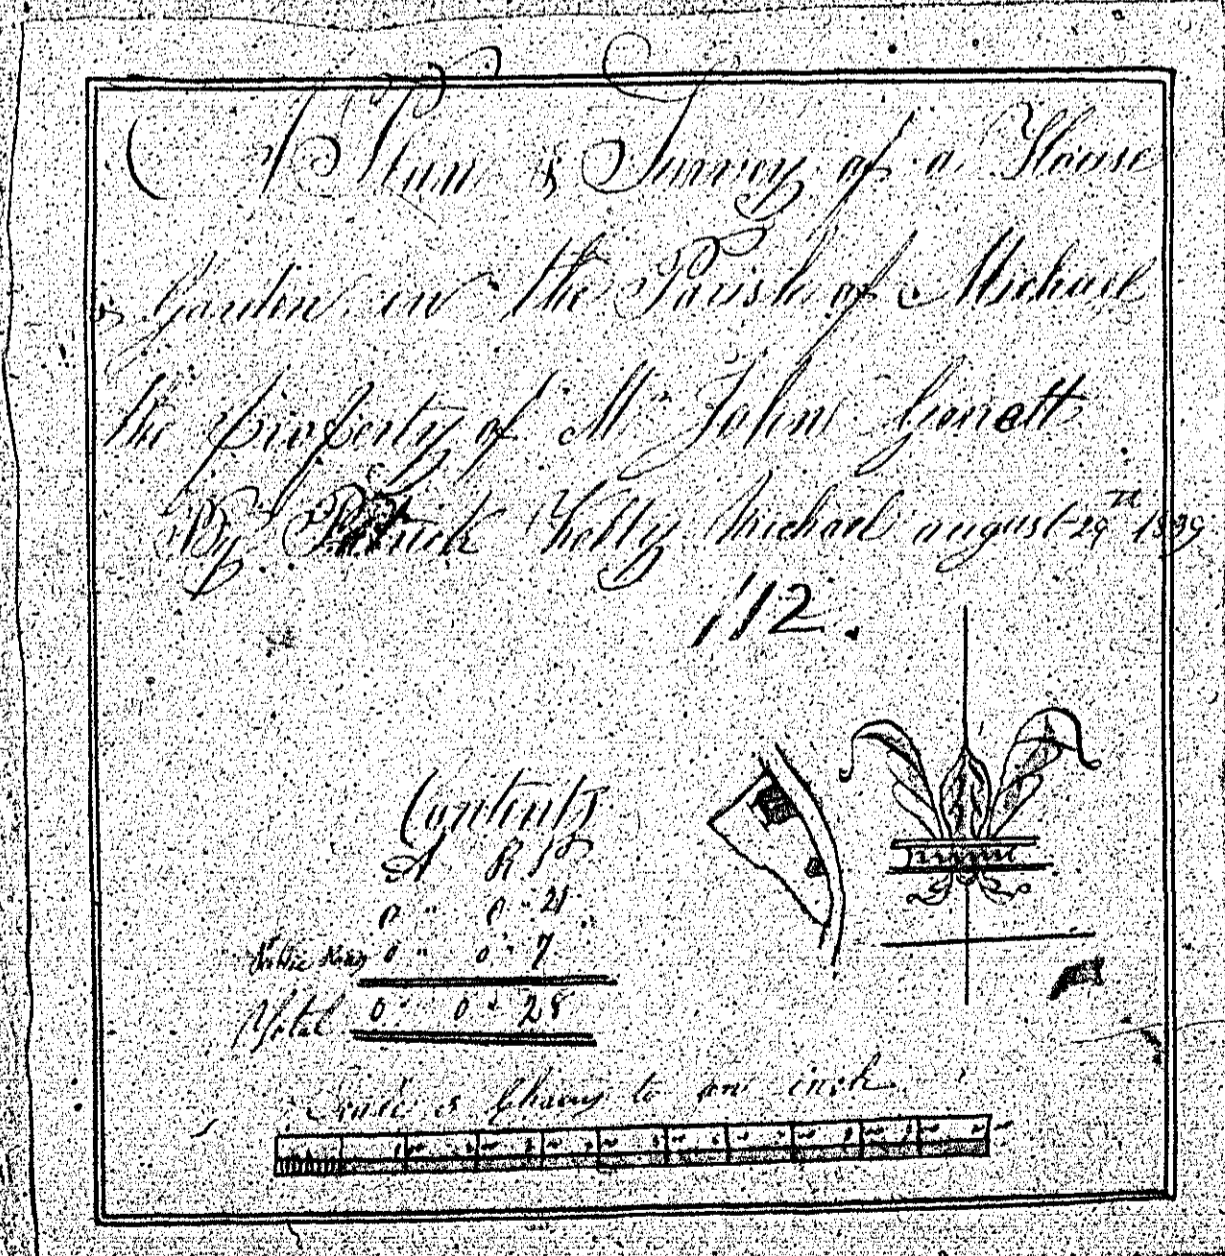 A Plan & Survey of a House
& Garden in the Parish of Michael
the property of Mr John Garrett
By Patrick Kelly Michael august 29th 1839
112.
Contents
A R P
0 " 0 " 21
Public Road 0 " 0 " 7
Total 0 " 0 " 28
Scale 3 Chains to an inch